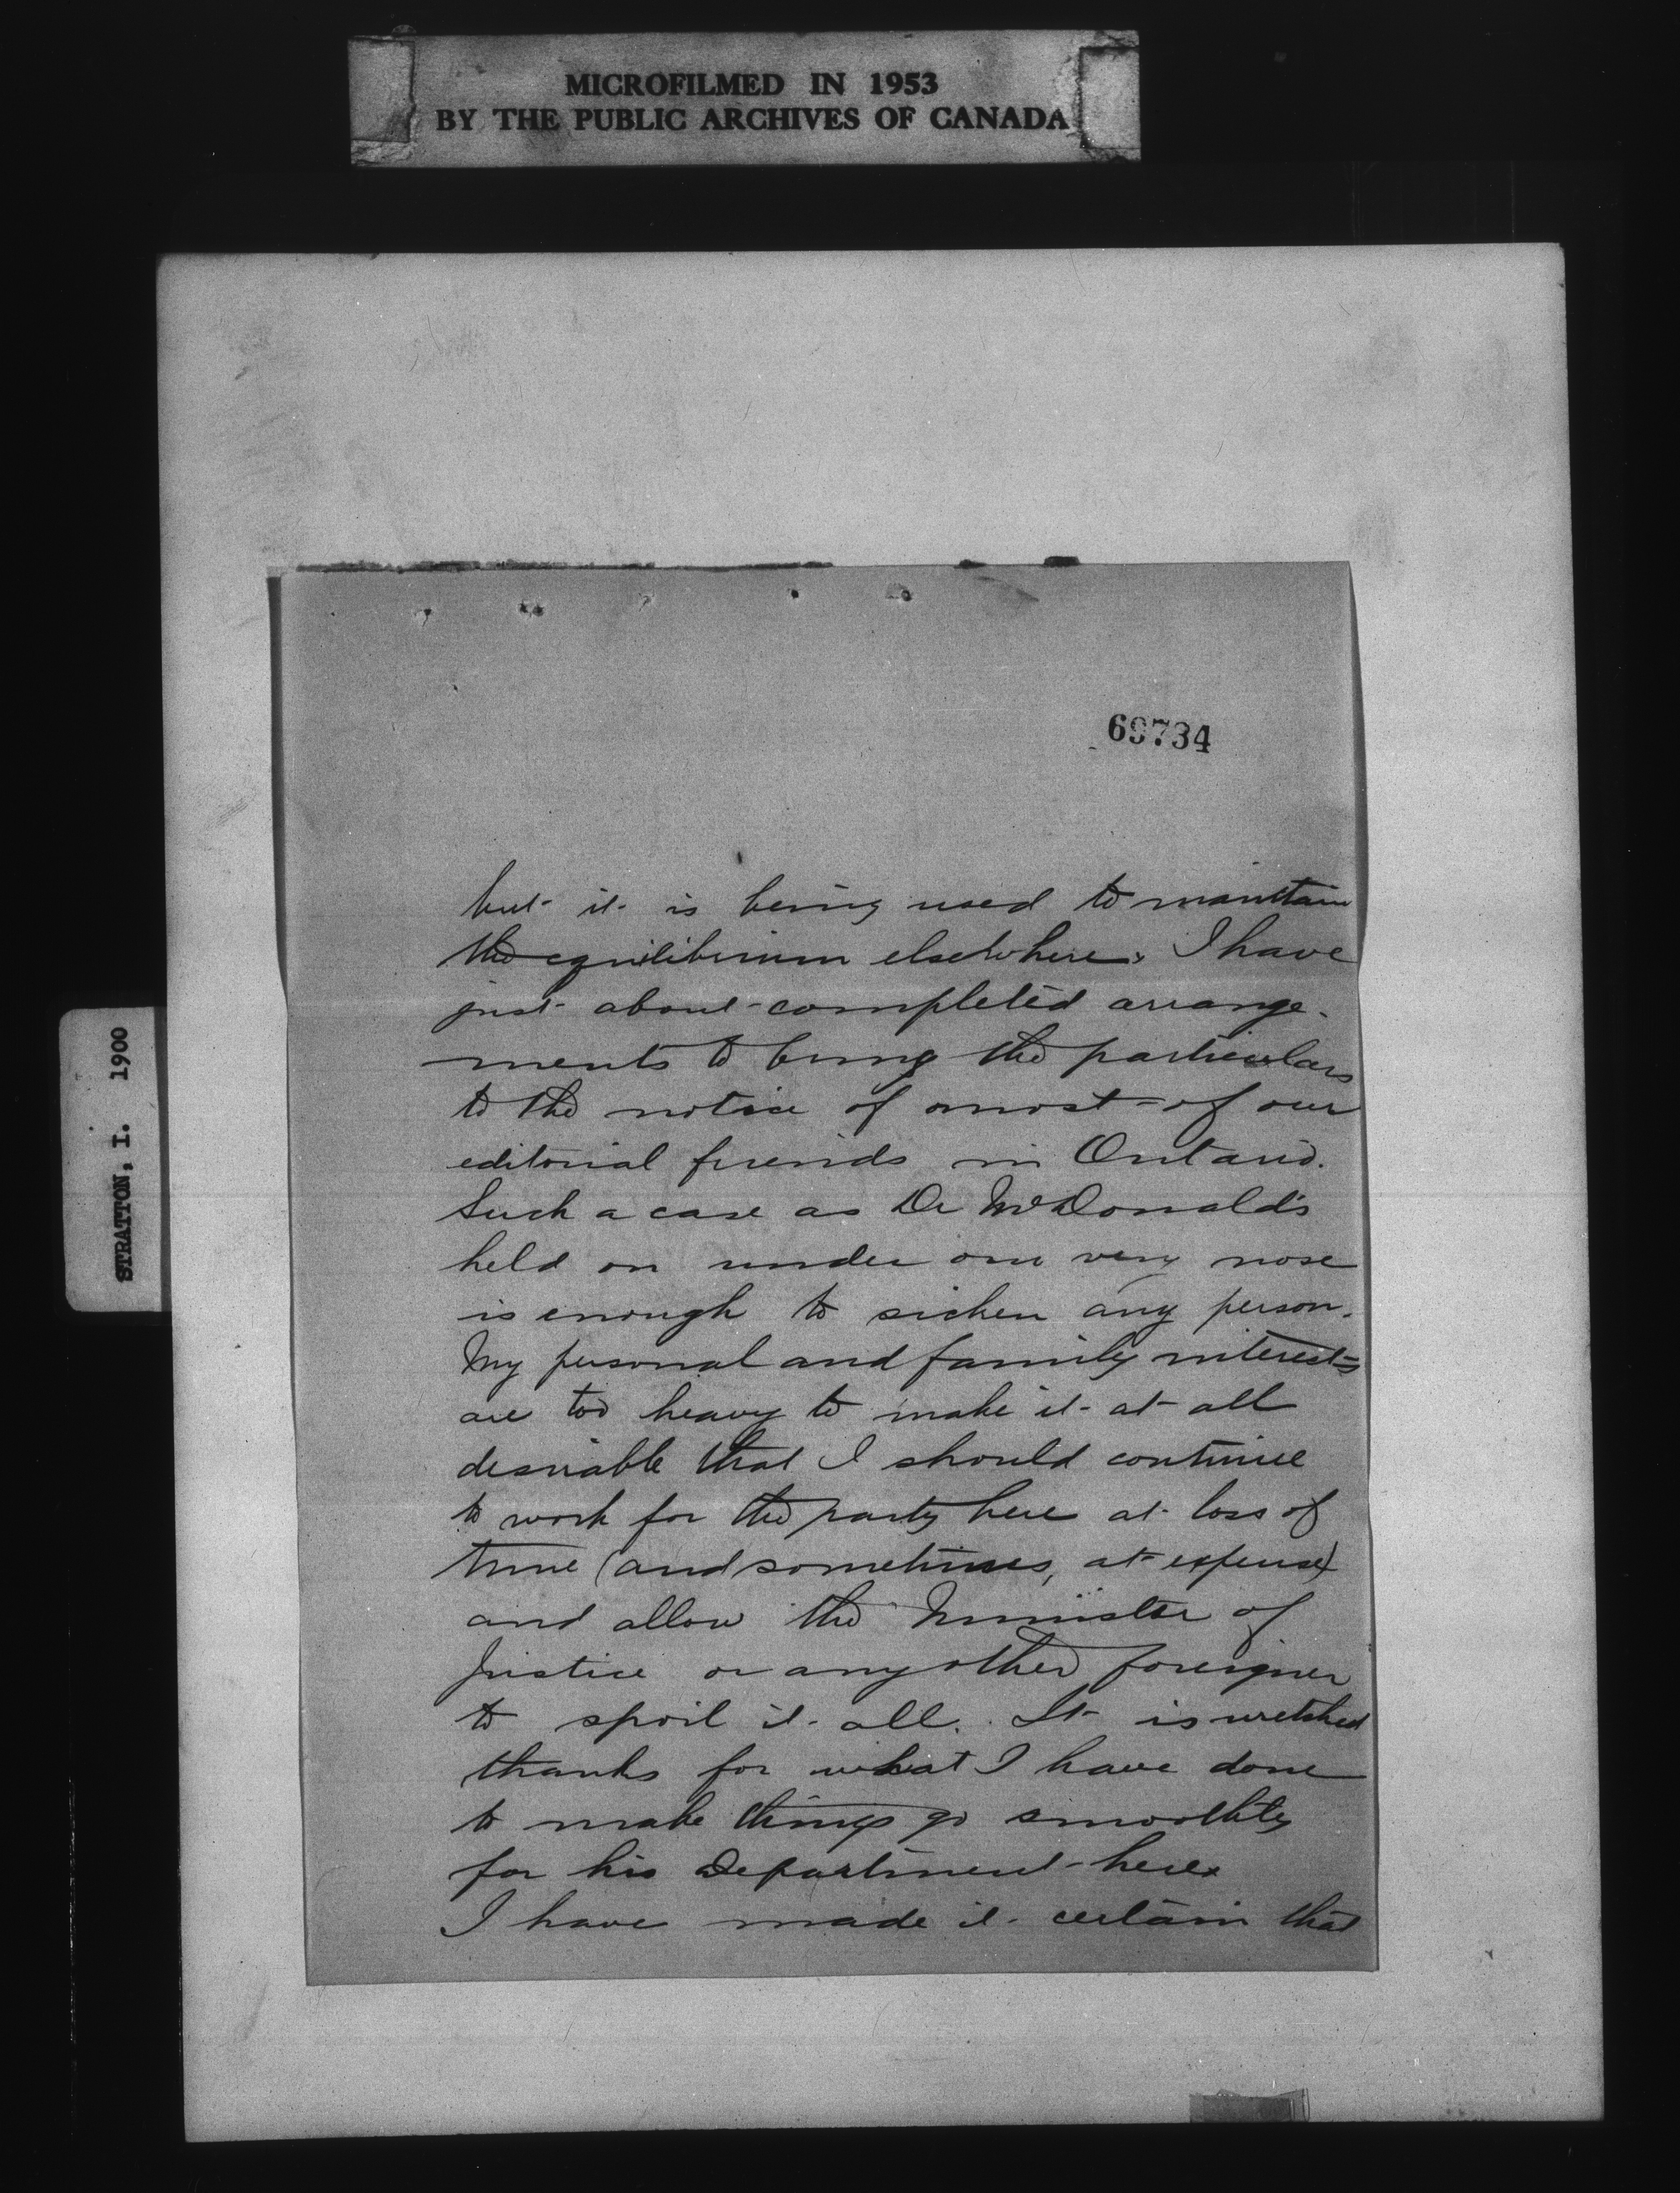 MICROFILMED IN 1953
BY THE PUBLIC ARCHIVES OF CANADA
STRATTON, I. 1900
69734
but it is being used to maintain
the equilibrium elsewhere. I have
just about completed arrange-
ments to bring the particulars
to the notice of most of our
editorial friends in Ontario.
Such a case as Dr McDonald's
held on under our very nose
is enough to sicken any person.
My personal and family interests
are too heavy to make it at all
desirable that I should continue
to work for the party here at loss of
time (and sometimes, at expense)
and allow the Minister of
Justice or any other foreigner
to spoil it all. It is wretched
thanks for what I have done
to make things go smoothly
for his Department here.
I have made it certain that